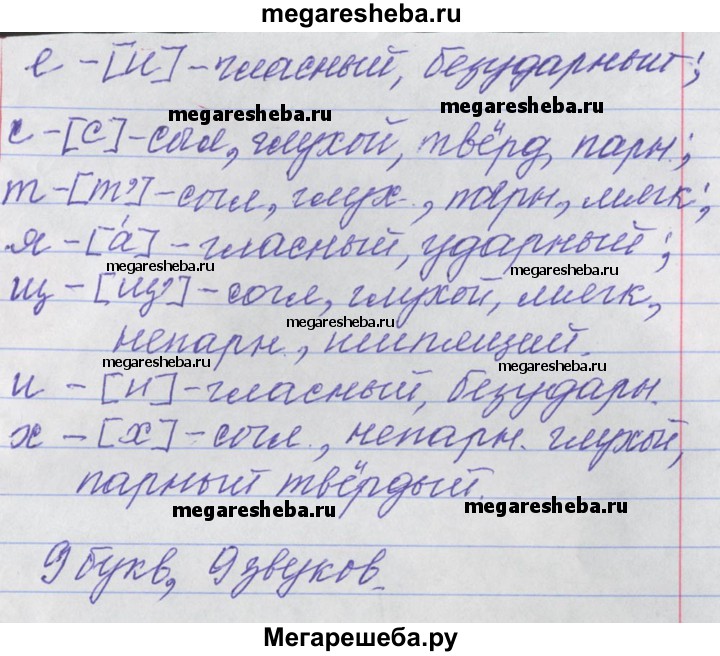 megaresheba.ru
е - [и] - гласный, безударный;
megaresheba.ru megaresheba.ru
с - [с] - согл, глухой, твёрд, парн;
т - [т'] - согл, глух., парн, мягк;
я - [á] - гласный, ударный;
megaresheba.ru megaresheba.ru
щ - [щ'] - согл, глухой, мягк,
megaresheba.ru
непарн., шипящий.
megaresheba.ru megaresheba.ru
и - [и] - гласный, безударн.
х - [х] - согл., непарн. глухой,
парный твёрдый.
megaresheba.ru megaresheba.ru
9 букв, 9 звуков.
Мегарешеба.ру